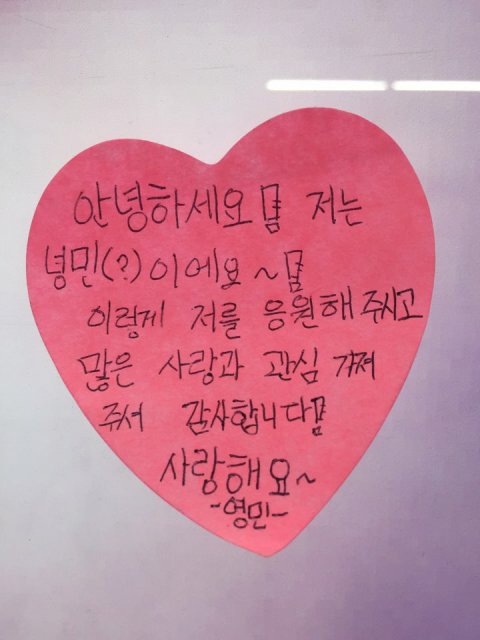 안녕하세요!! 저는
녕민(?)이에요~!!
이렇게 저를 응원해 주시고
많은 사랑과 관심 가져
주셔 감사합니다!!
사랑해요~
-영민-